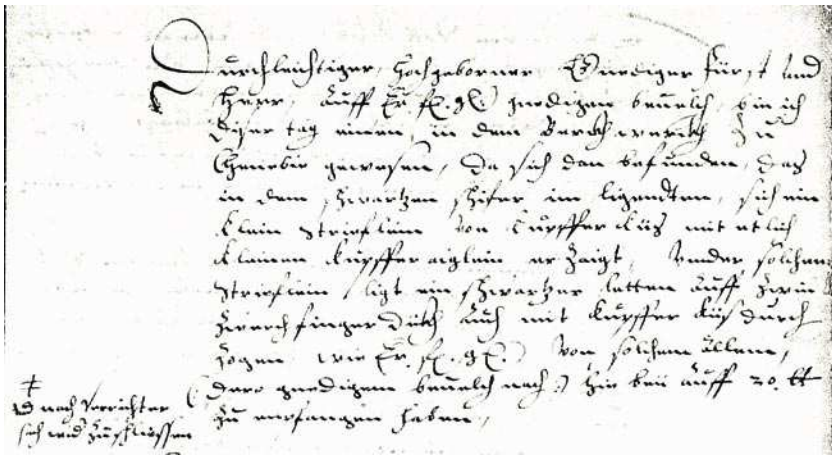 Durchleichtiger, Hochgeborner Gnediger Fürst und
Herr, Auff Er. fr. gl. gnedigen bevelch, bin ich
diser tag einen, in dem Berckhwerckh zu
gewesen, Da sich dan befunden, das
in dem schwartzen schifer im ligendten, sich ein
klein strieflein von Kupffer küs mit etlich
kleinen kupffer aiglein er zaigt, Under solchem
strieflein, ligt ein schwartzer letten auff zwen
zwerch finger dückh auch mit kupffer küs durch
zogen, wie Er. fr. gl. von solchem allem,
dero gnedigem bevelch nach hie beÿ auff 20. lt
zu empfangen haben,
nach verrichter
sich wider zuschliessen